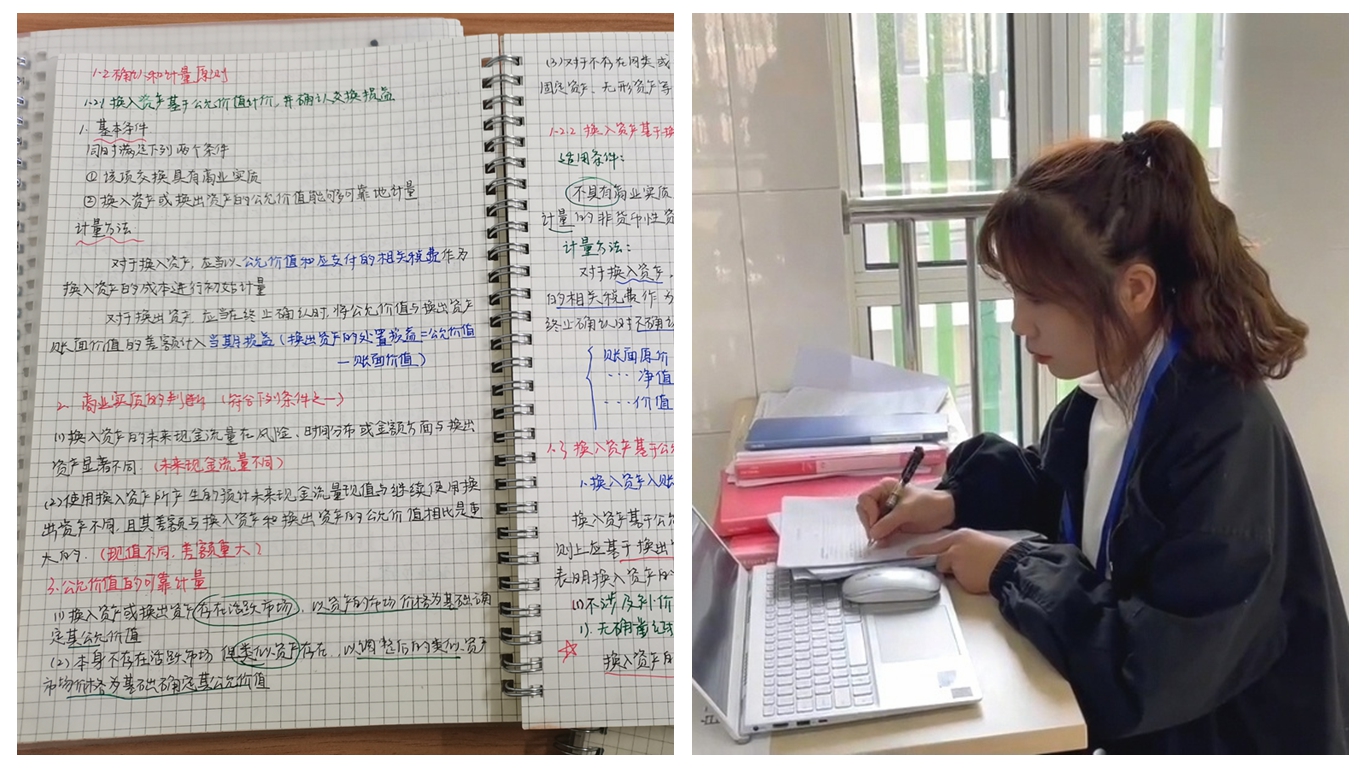 1.2 确认和计量原则
1.2.1 换入资产基于公允价值计价，并确认交换损益
1. 基本条件
同时满足下列两个条件
① 该项交换具有商业实质
② 换入资产或换出资产的公允价值能够可靠地计量
计量方法
对于换入资产，应当以公允价值和应支付的相关税费作为
换入资产的成本进行初始计量
对于换出资产，应当在终止确认时，将公允价值与换出资产
账面价值的差额计入当期损益（换出资产的处置损益=公允价值
—账面价值）
2. 商业实质的判断（符合下列条件之一）
(1) 换入资产的未来现金流量在风险、时间分布或金额方面与换出
资产显著不同.（未来现金流量不同）
(2) 使用换入资产所产生的预计未来现金流量现值与继续使用换
出资产不同,且其差额与换入资产和换出资产的公允价值相比是重
大的.（现值不同,差额重大）
3.公允价值的可靠计量
(1) 换入资产或换出资产存在活跃市场，以资产的市场价格为基础确
定其公允价值
(2) 本身不存在活跃市场 但类似资产存在，以调整后的类似资产
市场价格为基础确定其公允价值
(3) 对于不存在同类或
固定资产、无形资产等
1.2.2 换入资产基于换
适用条件：
不具有商业实质
计量的非货币性资
计量方法：
对于换入资产，
的相关税费作为
终止确认时不确认
账面原价
… 净值
… 价值
1.3 换入资产基于公
1. 换入资产入账
换入资产基于公允
则上应基于换出
表明换入资产的
(1) 不涉及补价
1). 无确凿证
换入资产的